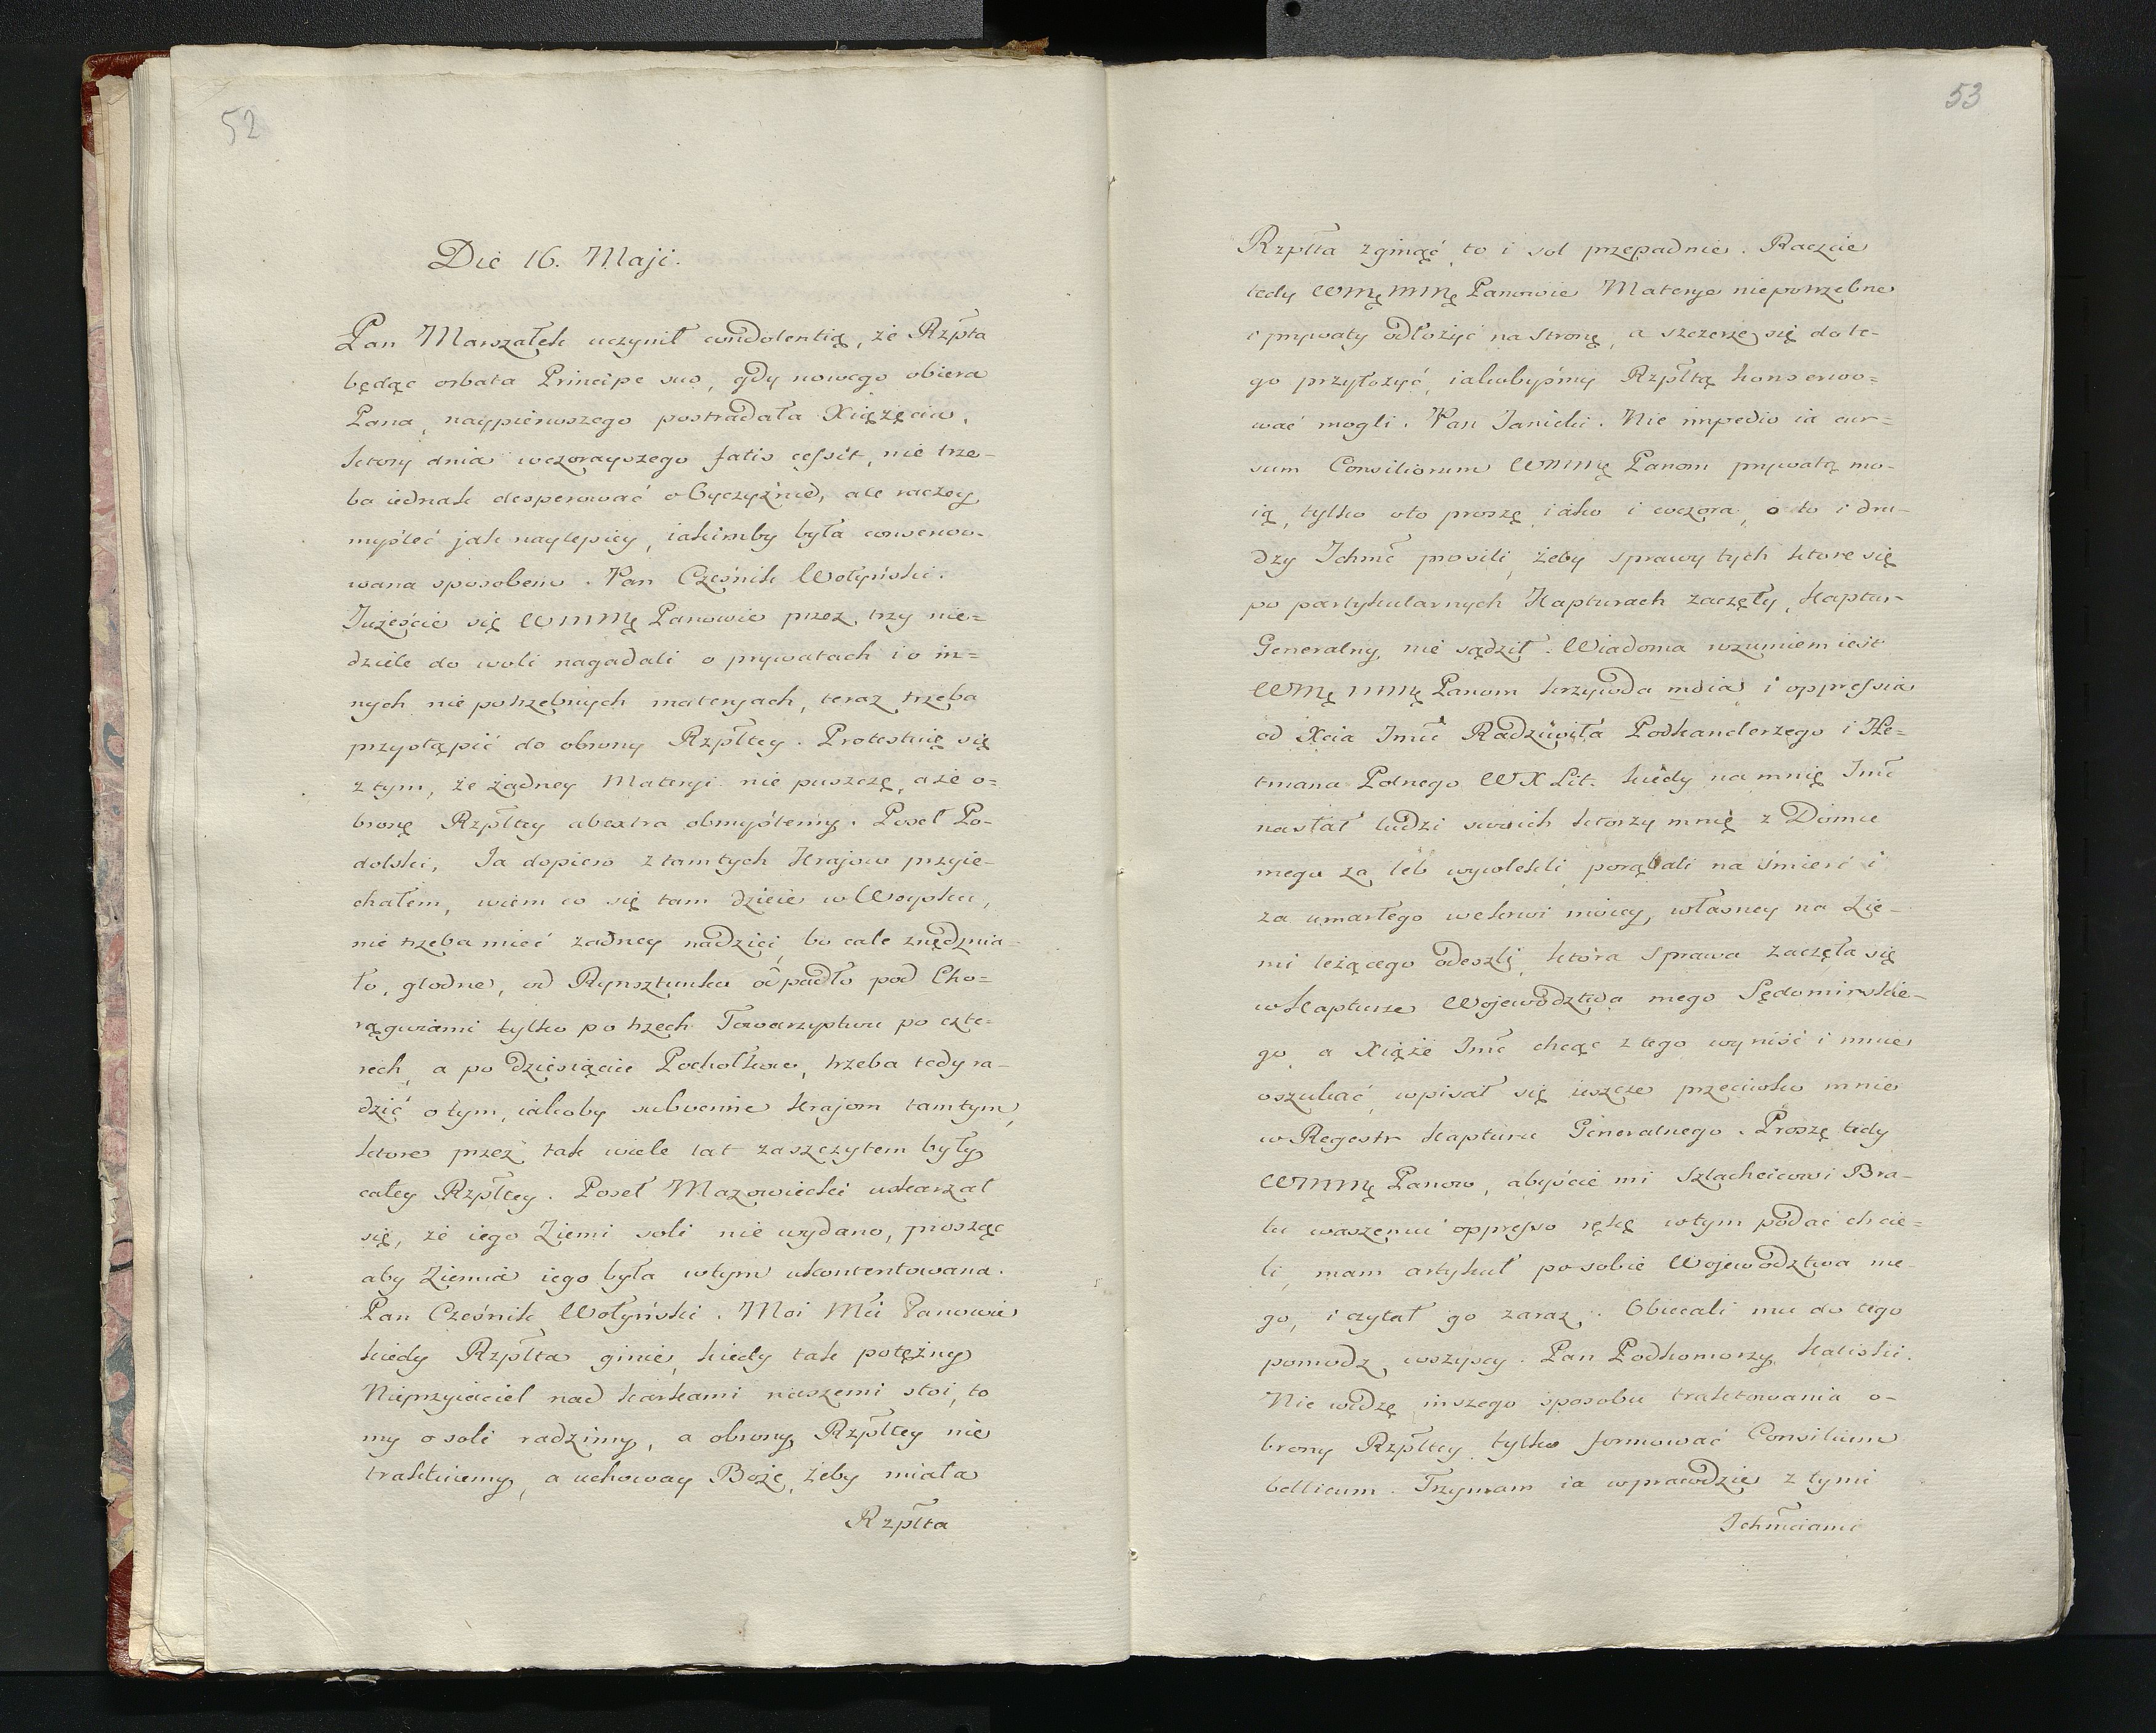 52
Die 16. Maji.
Pan Marszałek uczynił condolentią, że Rzpłta
będąc orbata Principe suo, gdy nowego obiera
Pana, naypierwszego postradała Xiążęcia,
ktory dnia wczorayszego fatis cessit, nie trze-
ba iednak desperować o Oyczyźnie, ale raczey
myśleć jak naylepiey, iakimby była conserwo-
wana sposobem. Pan Cześnik Wołyński.
Jużeście się WMMę Panowie przez trzy nie=
dziele do woli nagadali o prywatach i o in=
nych niepotrzebnych materyach, teraz trzeba
przystąpić do obrony Rzpltey. Protestuię się
z tym, że żadney Materyi nie puszczę, aże o=
bronę Rzpltey abextra obmyślemy. Poseł Po-
dolski, Ja dopiero z tamtych Krajow przyie-
chałem, wiem co się tam dzieie w Woysku,
nie trzeba mieć żadney nadziei, bo cale znędznia-
ło, głodne, od Rynsztunku odpadło pod Cho=
rągwiami tylko po trzech Towarzystwa po czte-
rech, a po dziesiącie Pocholkow, trzeba tedy ra-
dzić o tym, iakoby subvenire krajom tamtym,
ktore przez tak wiele lat zaszczytem były
całey Rzpltey. Poseł Mazowiecki uskarzał
się, że iego Ziemi soli nie wydano, prosząc
aby Ziemia iego była wtym ukontentowana.
Pan Cześnik Wołyński. Moi Mci Panowie
kiedy Rzplta ginie, kiedy tak potężny
Nieprzyiaciel nad karkami naszemi stoi, to
my o soli radzimy, a obrony Rzpltey nie
traktuiemy, a uchoway Boże, żeby miała
Rzplta
53
Rzplta zginąć, to i sol przepadnie. Raczcie
tedy WMę MMę Panowie Materye niepotrzebne
i prywaty odłożyć na stronę, a szczerze się do te-
go przyłożyć, iakobyśmy Rzpltą konserwo=
wać mogli. Pan Janicki. Nie impedio ia cur=
sum Consiliorum WMMę Panom prywatą mo-
ią, tylko oto proszę iako i wczora, o to i dru-
dzy Ichmć prosili, żeby sprawy tych ktore się
po partykularnych Kapturach zaczęły, Kaptur
Generalny nie sądził. Wiadoma rozumiem iest
WMę MMę Panom krzywda moia i oppressia
od Xcia Imci Radziwiła Podkanclerzego i He=
tmana Polnego WX Lit. kiedy na mnię Imć
nasłał ludzi swoich ktorzy mnię z Domu
mego za łeb wywlekli porąbali na śmierć i
za umarłego wekrwi moiey, własney na Zie-
mi leżącego odeszli, ktora sprawa zaczęła się
w Kapturze Wojewodztwa mego Sędomirskie-
go, a Xiąże Imć chcąc z tego wyniść i mnie
oszukać, wpisał się ieszcze przeciwko mnie
w Regestr Kapturu Generalnego. Proszę tedy
WMMę Panow, abyście mi Szlachcicowi Bra-
tu waszemu oppresso rękę wtym podać chcie=
li, mam artykuł po sobie Wojewodztwa me
go, i czytał go zaraz. Obiecali mu do tego
pomodz wszyscy. Pan Podkomorzy Kaliski.
Nie widzę inszego sposobu traktowania o-
brony Rzpltey tylko formować Consilium
bellicum. Trzymam ia wprawdzie z tymi
Ichmciami